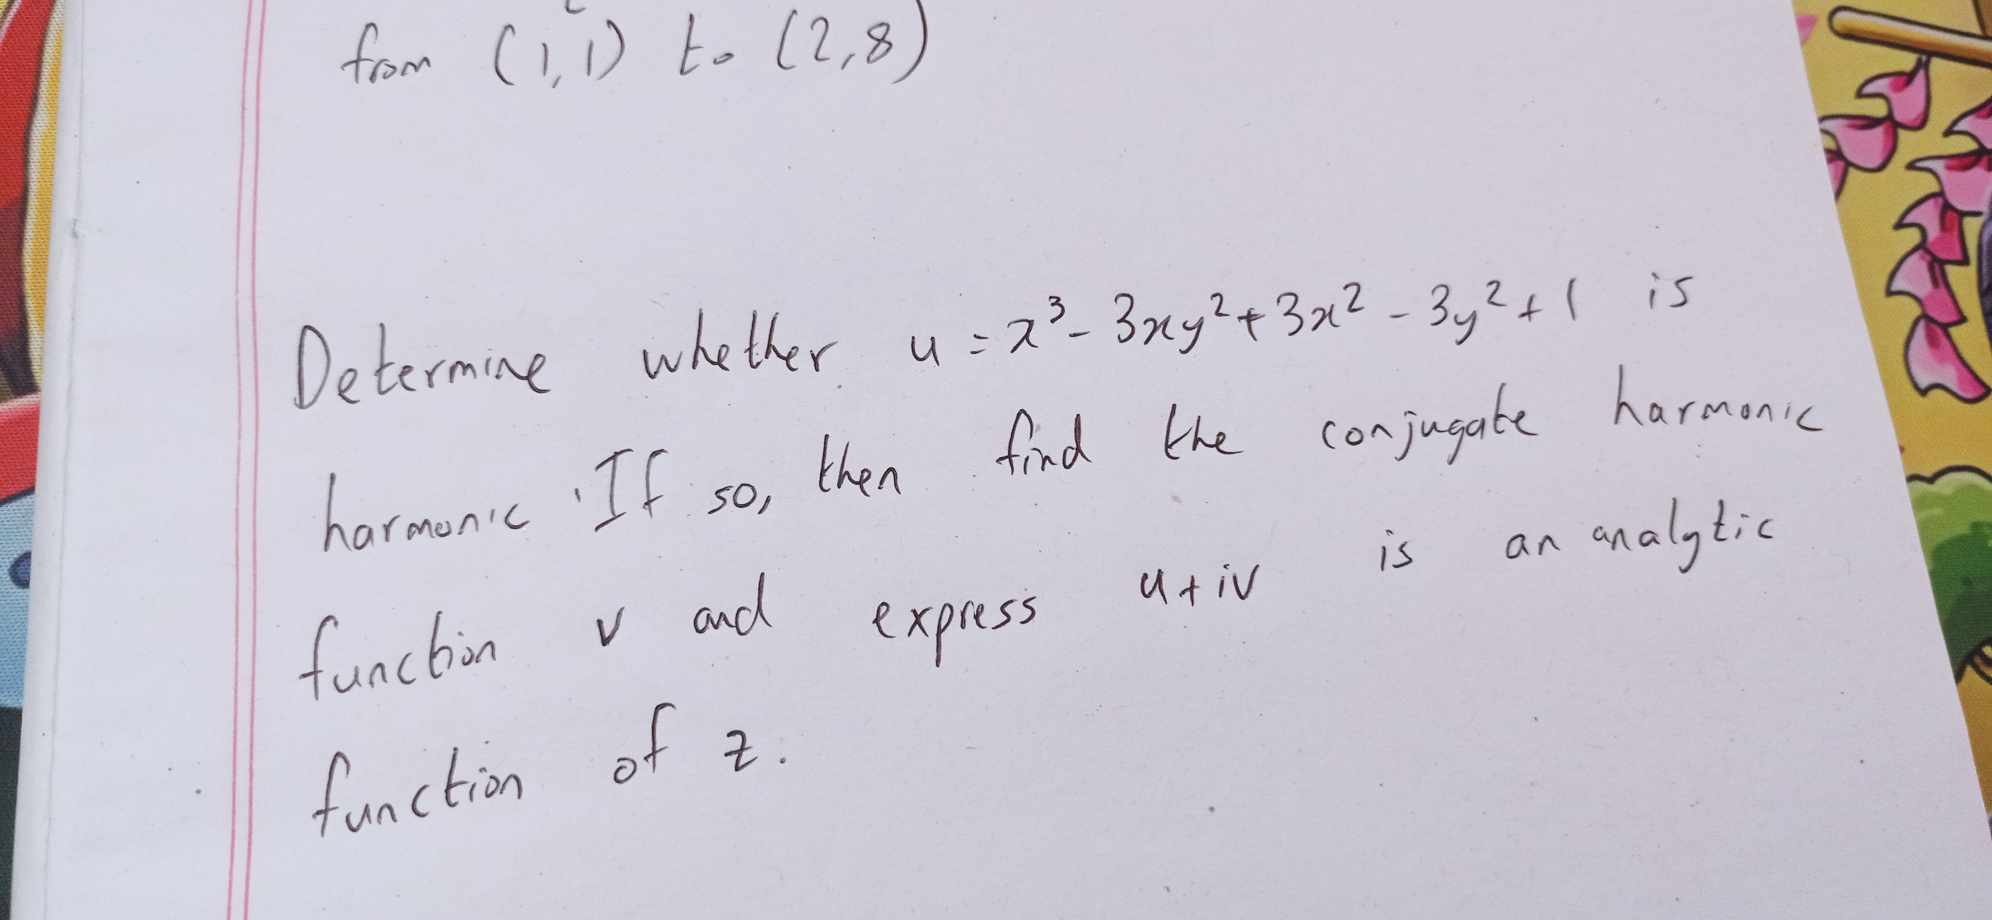 from (1,1) to (2,8)
Determine whether u = x³ - 3xy² + 3x² - 3y² + 1 is
harmonic. If so, then find the conjugate harmonic
function v and express u + iv is an analytic
function of z.